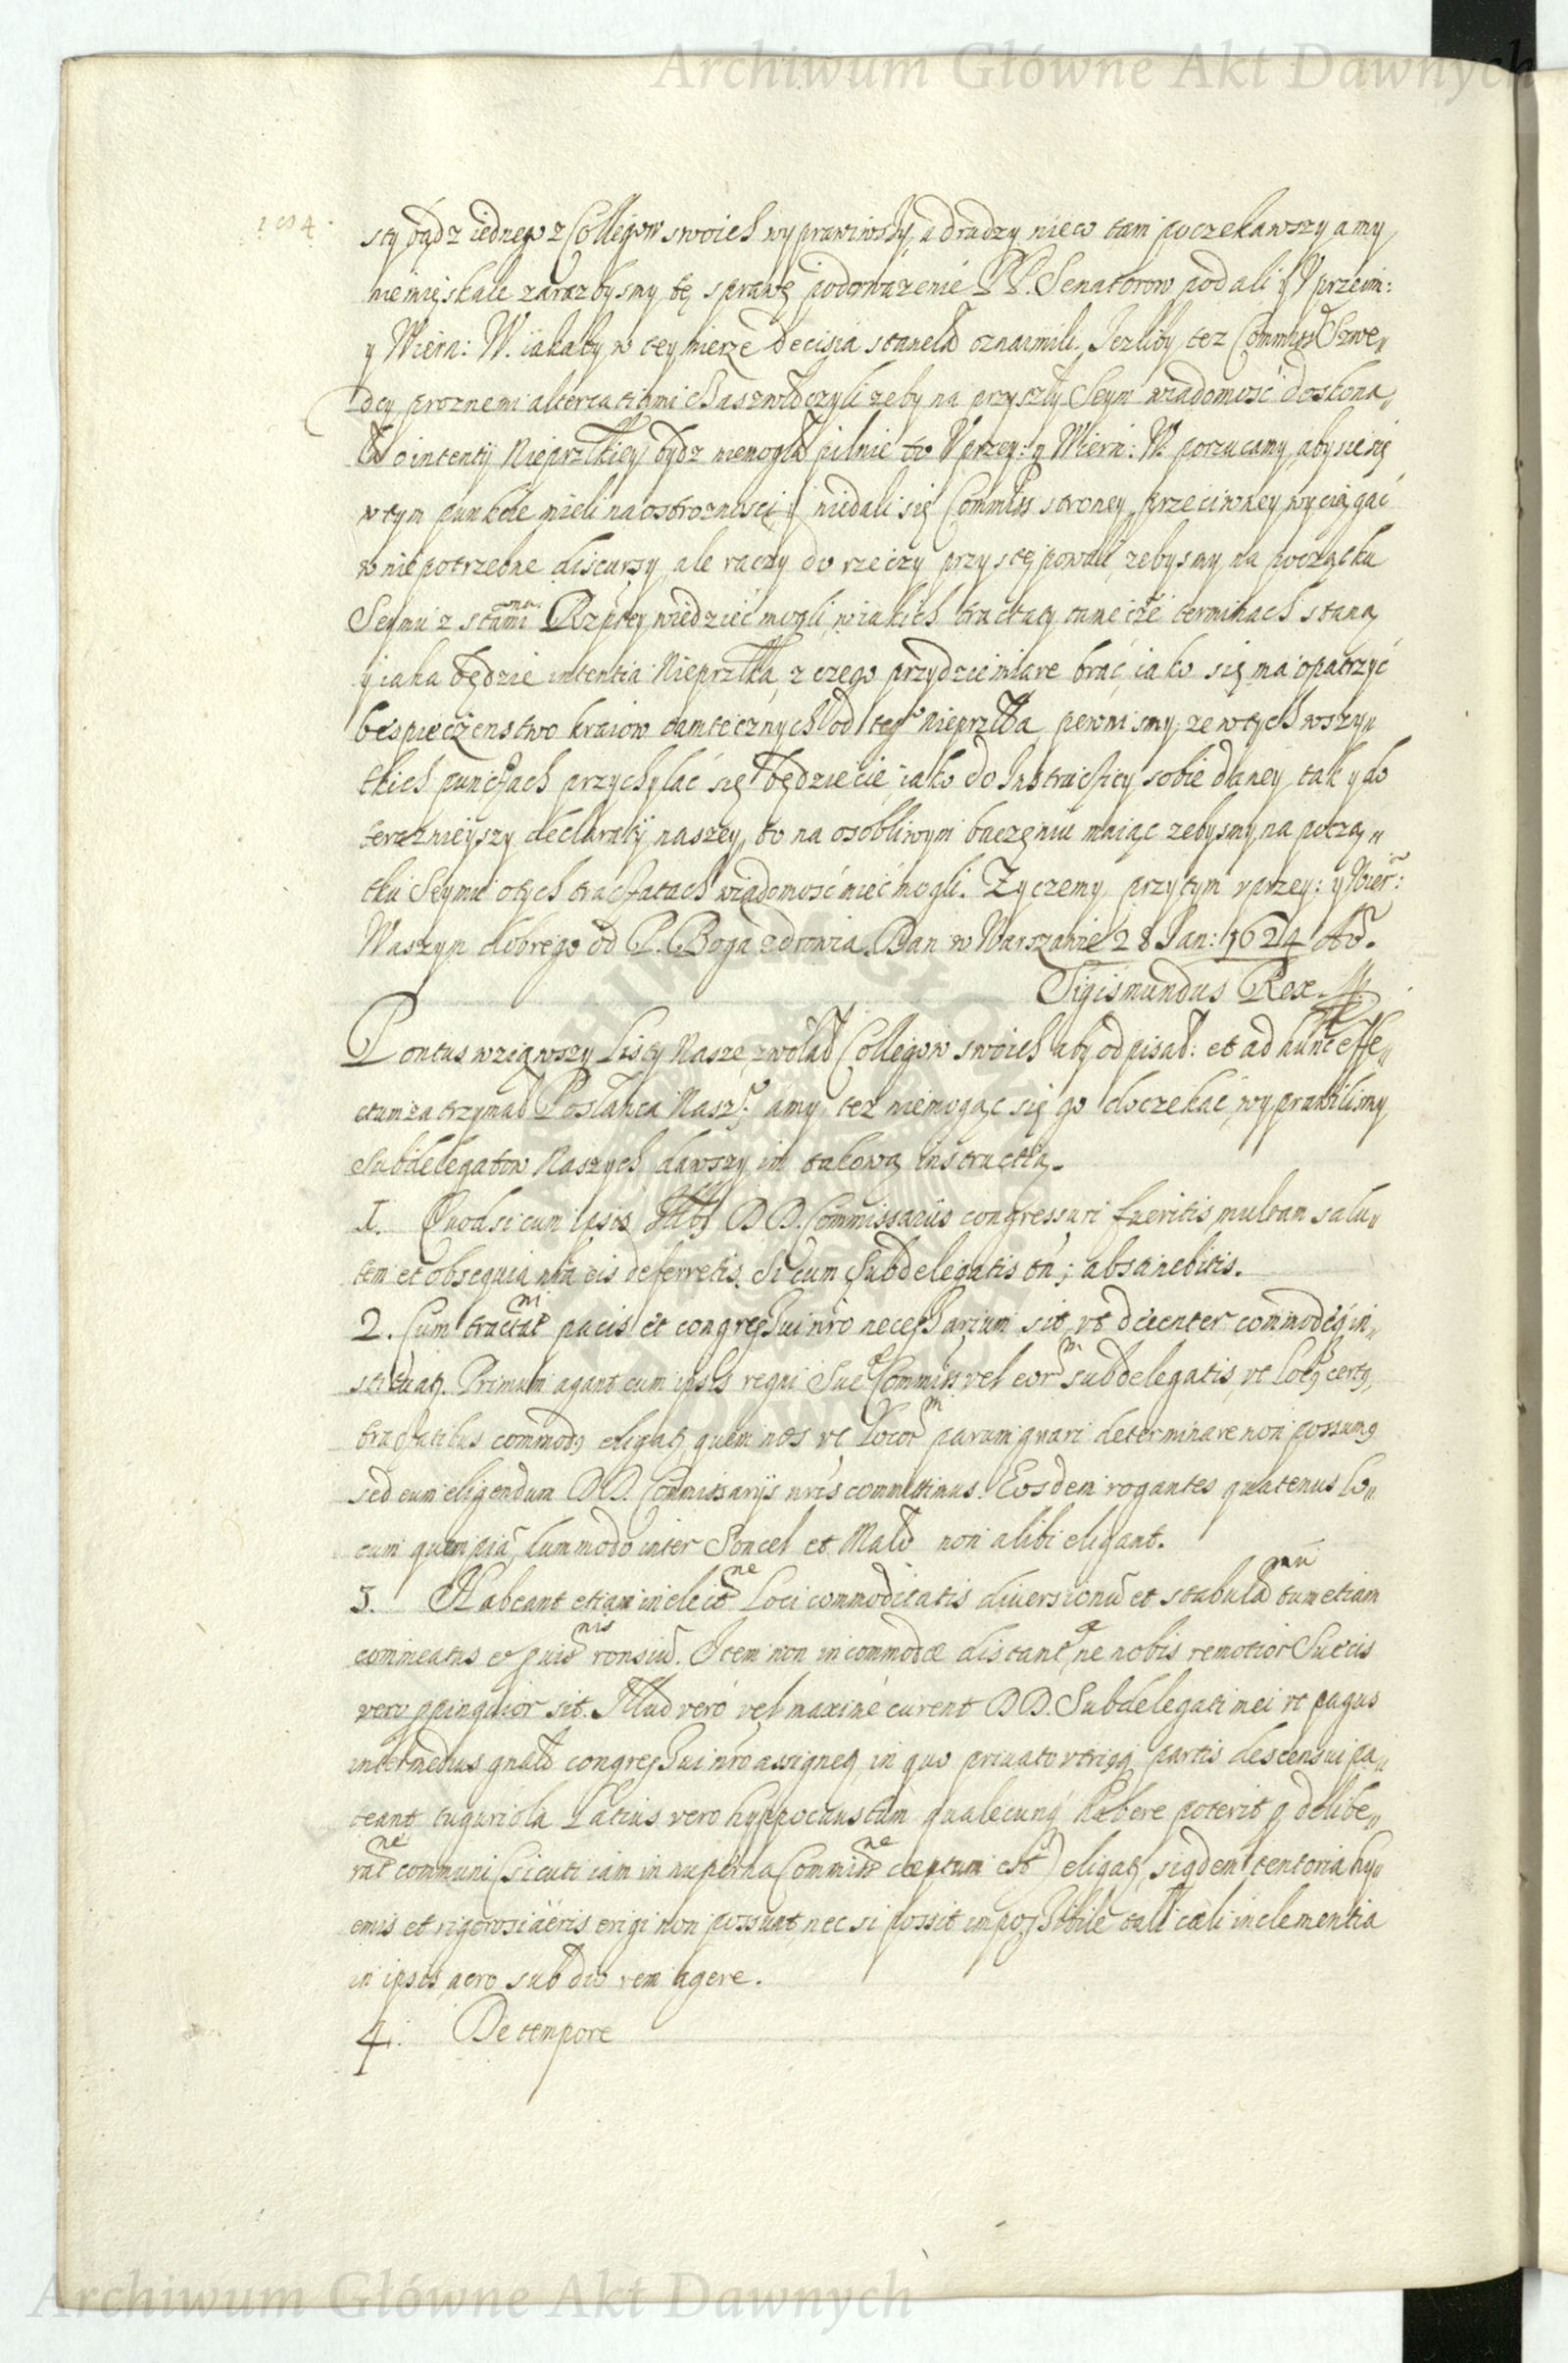 Archiwum Główne Akt Dawnych
sty bądz iednego z Collegow swoich wyprawiwszy, a drudzy nieco tam poczekawszy a my
niemięskale zarazbysmy tę sprawę podorważenie PP. Senatorow podali y Vprzeim:
y Wiern: W. iakaby w tey mierze decisia stanęła oznaimili. Jezliby tez Commiss Szwe„
dcy proznemi altercatiami czas zwłoczyli zeby na przyszły Seym wiadomosć doskona„
ła o intentij Nieprzłkiey bydz niemogła pilnie to Vprzey: y Wiern: W. porucamy, abysiesię
w tym punkcie mieli na ostroznosci y niedali się Commiss strony przeciwney wyciągać
w niepotrzebne discursy, ale raczy do rzeczy przystępowali, zebysmy na początku
Seymu z stami Rzptey wiedzieć mogli, w iakich tractaty tameczne terminach staną
y iaka będzie intentia Nieprzłka, z czego przydzie miare brać, iako się ma opatrzyć
bespieczenstwo kraiow tamtecznych od tego Nieprzłla, pewnismy, ze w tych wszy„
tkich punctach przychylać się będziecie, iako do Instructiey sobie daney, tak y do
teraznieyszy declaratij naszey, to na osobliwym baczeniu maiąc zebysmy na począ„
tku Seymu o tych tractatach wiadomosć mieć mogli. Zyczemy przytym vprzey: y Wier:
Waszym dobrego od P. Boga zdrowia. Dan w Warszawie 28 Jan: 1624 Ao.
Sigismundus Rex.
Pontus wziąwszy Listy Nasze, zwołał Collegow swoich aby odpisał: et ad hunc effe„
ctum zatrzymał Posłanca Nasz°: a my tez niemogąc się go doczekać, wyprawilismy
Subdelegatow Naszych, dawszy im takową instructią.
1. Quod si cum ipsis Illris DD. Commissariis congressuri fueritis, multam salu„
tem et obsequia nra eis deferretis. Si cum Subdelegatis tn; abstinebitis.
2. Cum tractat pacis et congressui nro necessarium sit, vt decenter commode in„
stituat. Primum agant cum ipsis regni Sue Commiss vel eor subdelegatis, vt loc9 cert9,
tractatibus commod9 eligat, quem nos vt locor parum gnari determinare non possum9
sed eum eligendum DD. Commissarijs nris committimus. Eosdem rogantes quatenus lo„
cum quempia, dummodo inter Soncel et Mald non alibi eligant.
3. Habeant etiam in elect loci commoditatis diversionu et stabuld tum etiam
commeatus et ronsiu. Item non incommodæ distant, ne nobis remotior Suecis
vero ppinquior sit. Illud vero vel maxime curent DD. Subdelegati mei vt pagus
intermedius gnald congressui nro assignet, in quo privato vtriq partis descensui pa„
teant tuguriola. Latius vero hyppocaustum qualecunq habere poterit q delibe„
rat communi (sicuti iam in nuperna Commiss cæptum est) eligat, siqdem tentoria hy„
emis et rigorosi aëris erigi non possunt, nec si possit impossibile tali cæli inclementia
in ipsis aero sub dio rem agere.
4. De tempore
Archiwum Główne Akt Dawnych